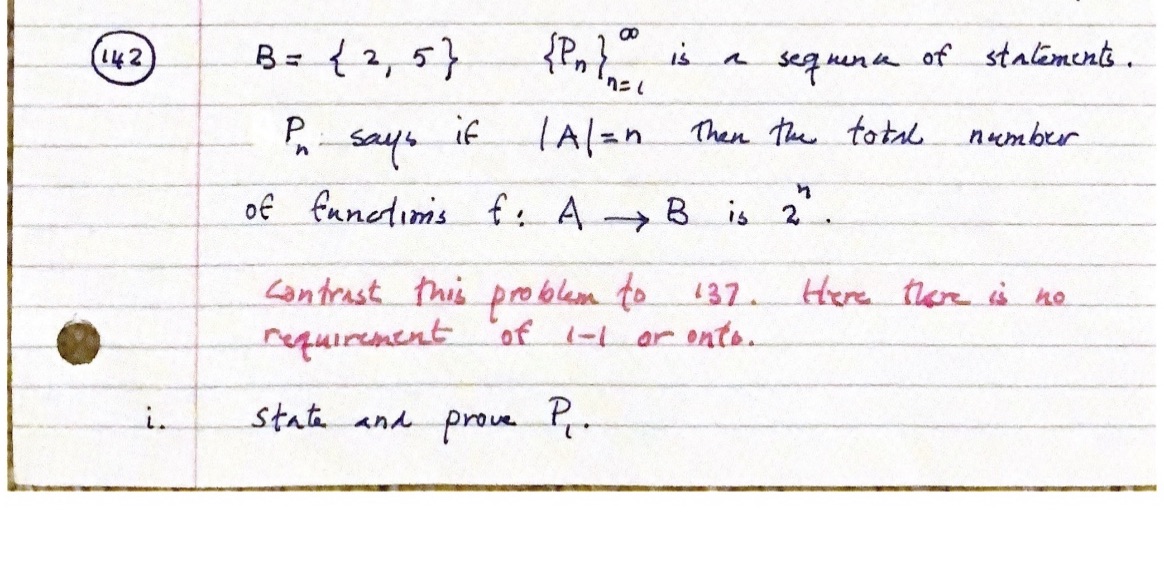 142 B = { 2, 5 } {Pₙ}ₙ₌₁^∞ is a sequence of statements.
Pₙ says if |A|=n then the total number
of functions f: A → B is 2ⁿ.
Contrast this problem to 137. Here there is no
requirement of 1-1 or onto.
i. State and prove P₁.